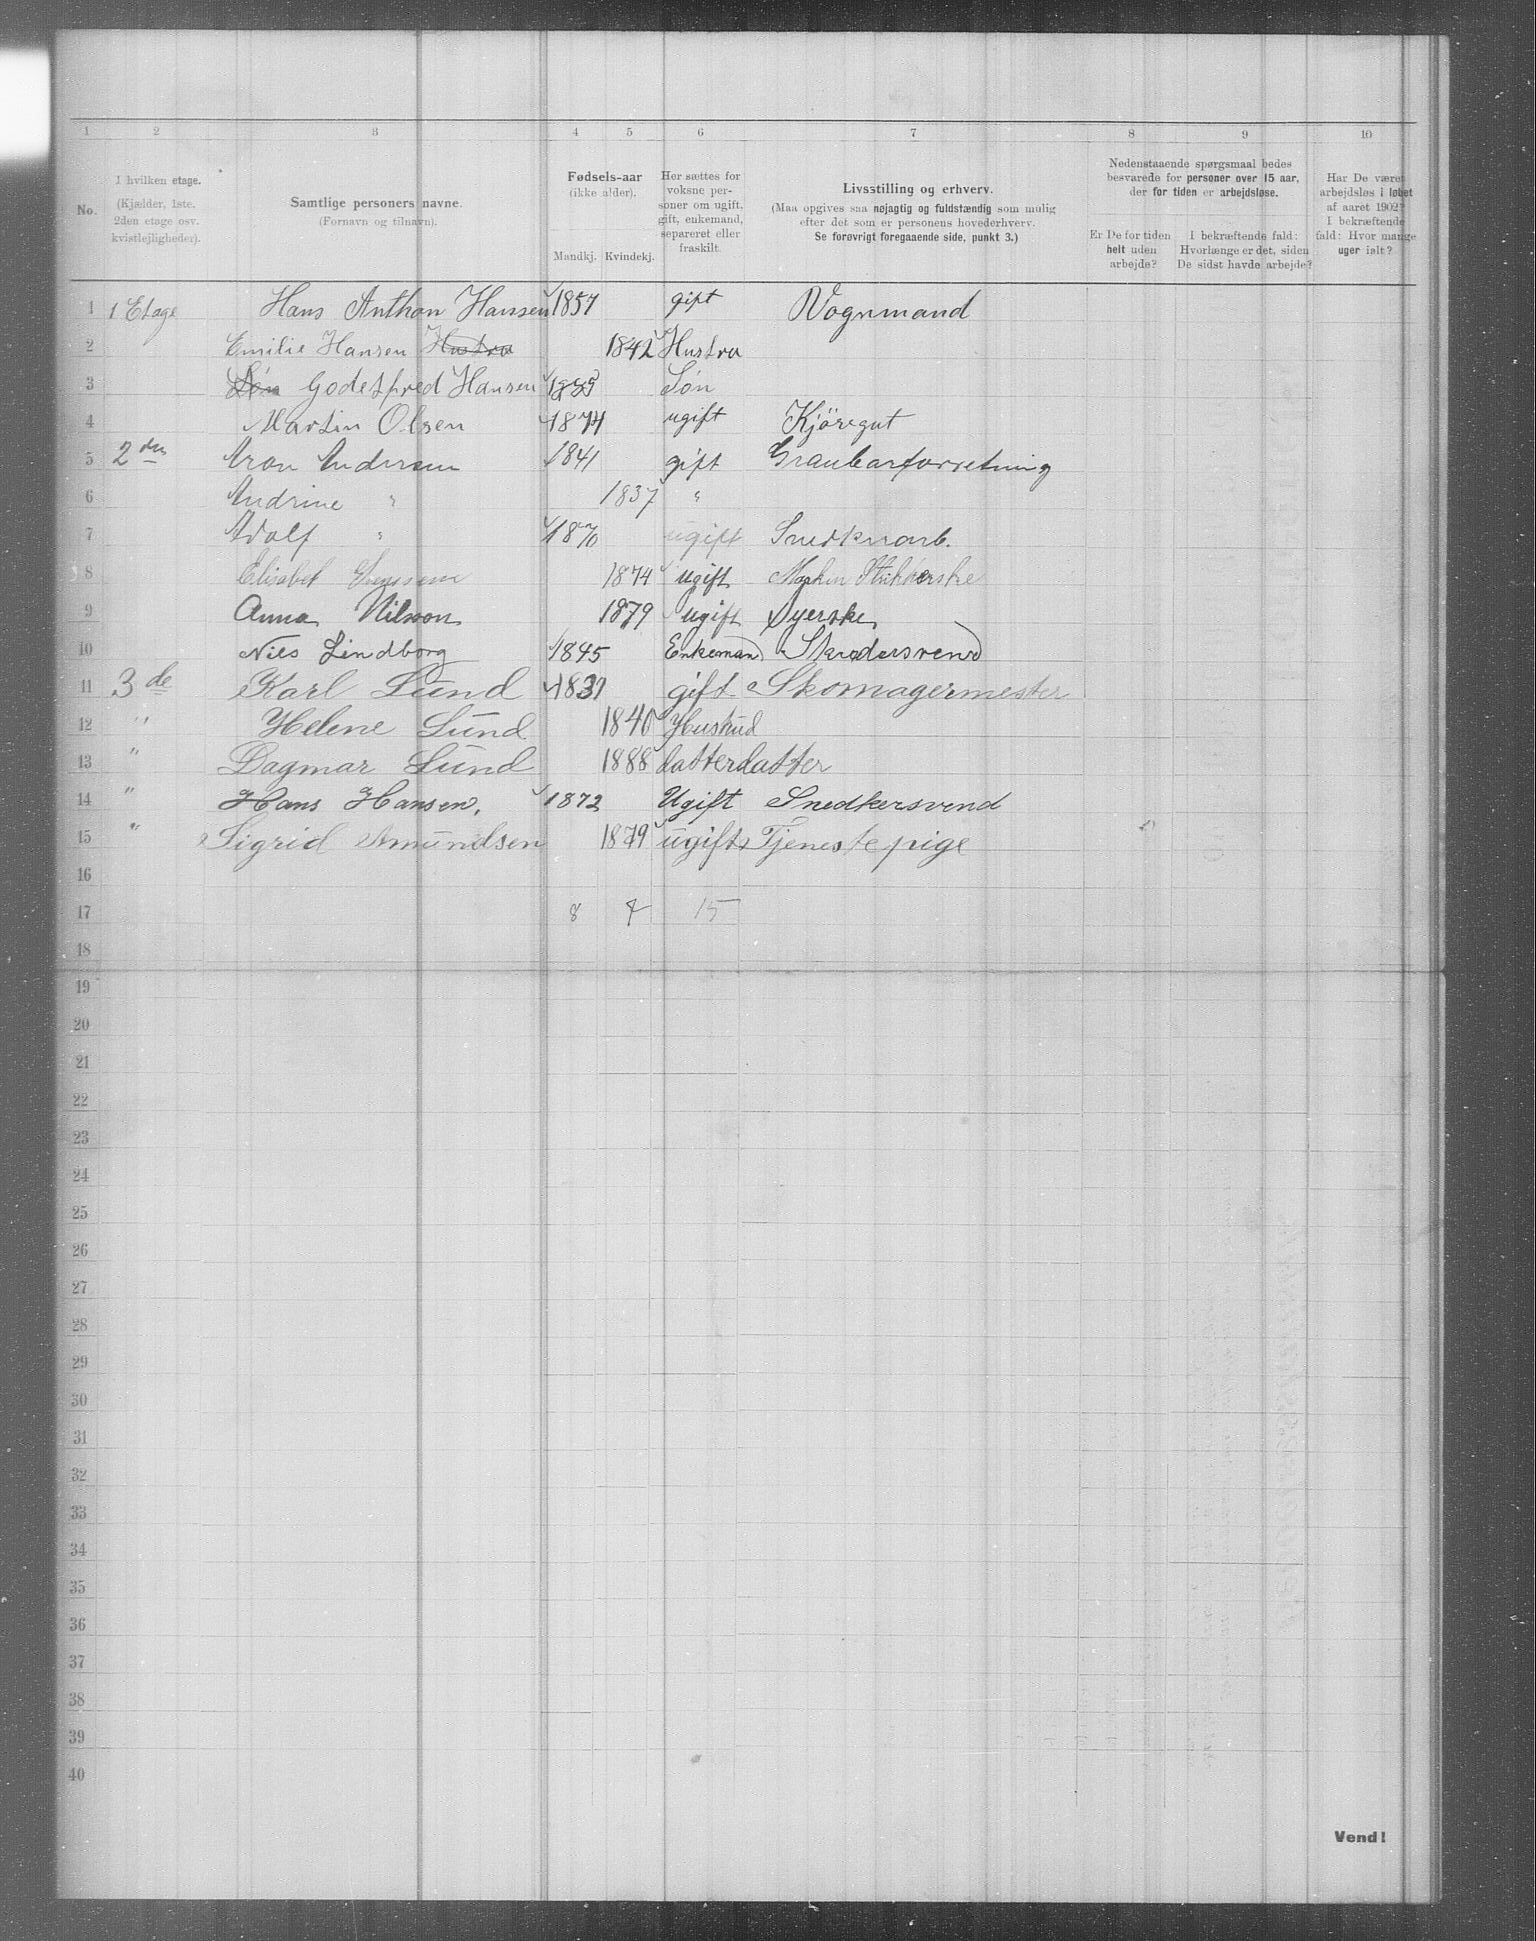 1 2 3 4 5 6 7 8 9 10
No.
I hvilken etage.
(Kjælder, 1ste.
2den etage osv.
kvistlejligheder).
Samtlige personers navne.
(Fornavn og tilnavn).
Fødsels-aar
(ikke alder).
Mandkj. Kvindekj.
Her sættes for
voksne per-
soner om ugift,
gift, enkemand,
separeret eller
fraskilt.
Livsstilling og erhverv.
(Maa opgives saa nøjagtig og fuldstændig som mulig
efter det som er personens hovederhverv.
Se forøvrigt foregaaende side, punkt 3.)
Nedenstaaende spørgsmaal bedes
besvarede for personer over 15 aar,
der for tiden er arbejdsløse.
Er De for tiden
helt uden
arbejde?
I bekræftende fald:
Hvorlænge er det, siden
De sidst havde arbejde?
Har De været
arbejdsløs i løbet
af aaret 1902?
I bekræftende
fald: Hvor mange
uger ialt?
1 1 Etage Hans Anthon Hansen 1857 gift Vognmand
2 Emilie Hansen Hustru 1842 Hustru
3 Søn Godetfred Hansen Søn
4 Martin Olsen 1874 ugift Kjöregut
5 2den Aron Andersen 1841 gift
6 Andrine " 1837 "
7 Adolf " 1870 ugift Snedkerarb.
8 Elisabet 1874 ugift Maskin Strikkerske
9 Anna Nilsson 1879 ugift Syerske
10 Nils Lindborg 1845 Enkemand Skrædersvend
11 3de Karl Lund 1831 gift Skomagermester
12 " Helene Lund 1840
13 " Dagmar Lund 1888 datterdatter
14 " Hans Hansen. 1872 Ugift Snedkersvend
15 " Sigrid Amundsen 1879 ugift Tjenestepige
16
17 8 7 15
18
19
20
21
22
23
24
25
26
27
28
29
30
31
32
33
34
35
36
37
38
39
40
Vend!